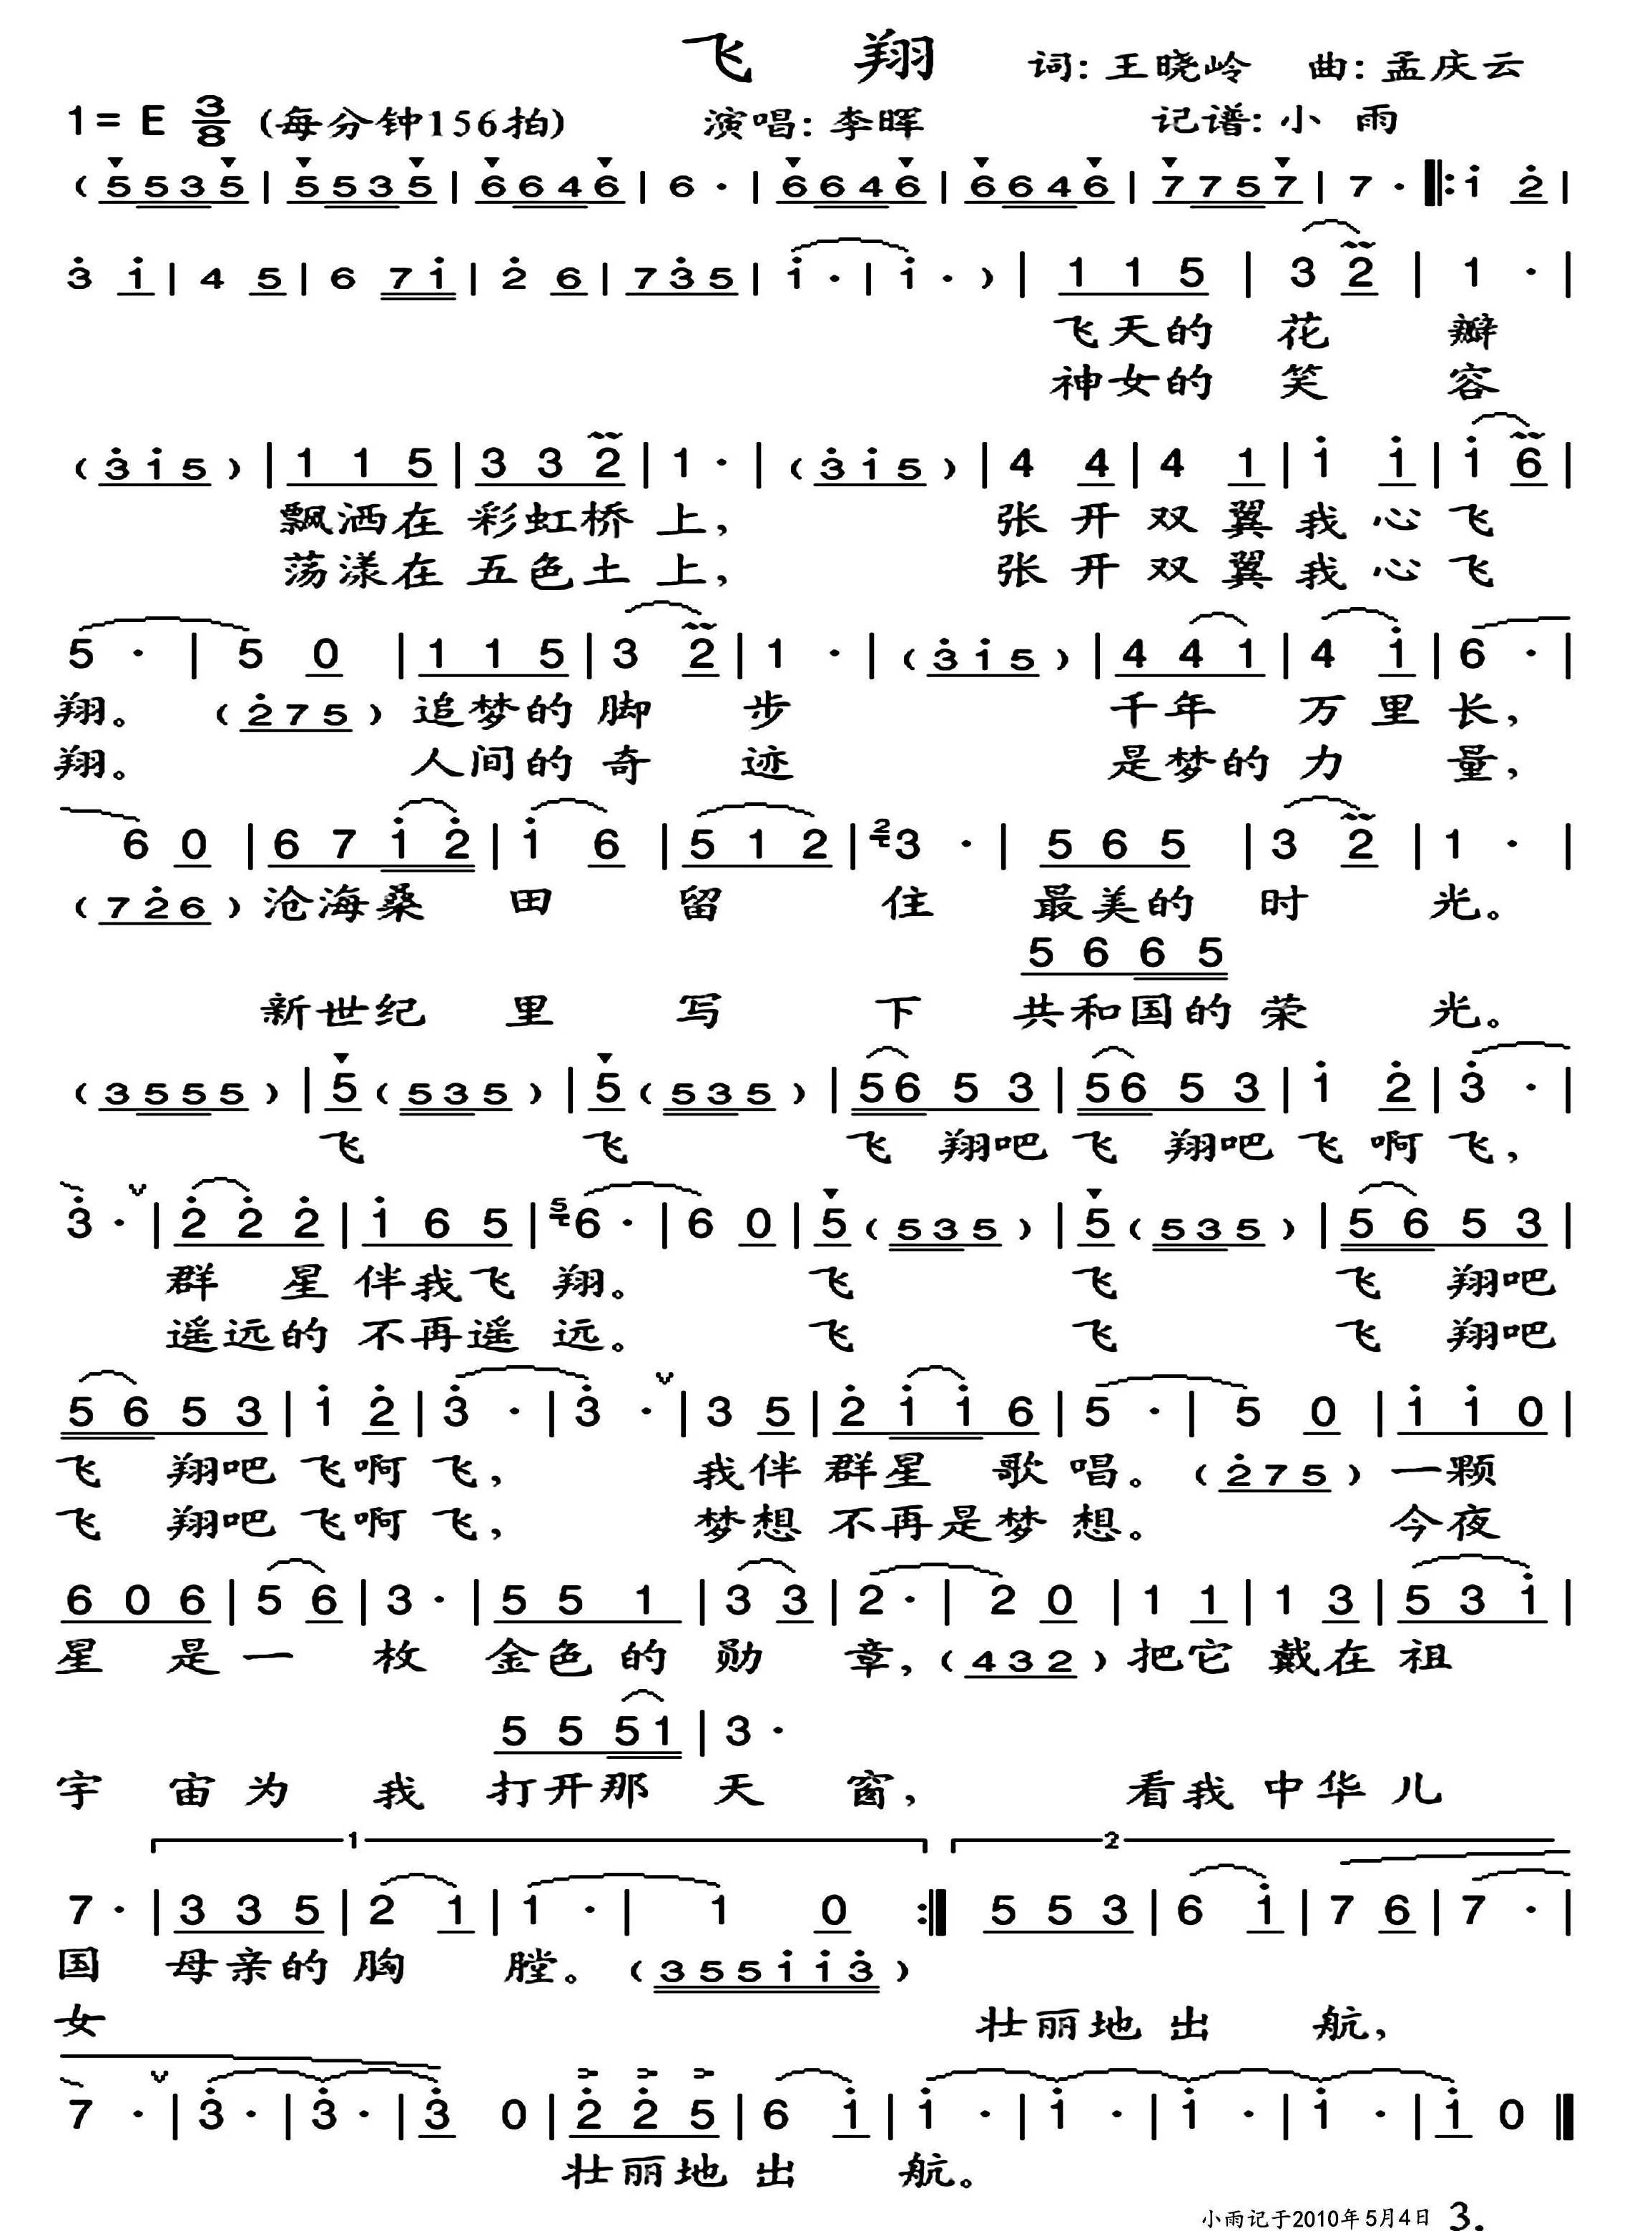 飞 翔 词: 王晓岭 曲: 孟庆云
1= E 3/8 (每分钟156拍) 演唱: 李晖 记谱: 小 雨
( 5 5 3 5 | 5 5 3 5 | 6 6 4 6 | 6 · | 6 6 4 6 | 6 6 4 6 | 7 7 5 7 | 7 · |: i 2 |
3 i | 4 5 | 6 7 i | 2 6 | 7 3 5 | i · | i · ) | 1 1 5 | 3 2 | 1 · |
飞天的 花 瓣
神女的 笑 容
( 3 i 5 ) | 1 1 5 | 3 3 2 | 1 · | ( 3 i 5 ) | 4 4 | 4 1 | i i | i 6 |
飘洒在 彩虹桥 上, 张 开 双 翼 我 心 飞
荡漾在 五色土 上, 张 开 双 翼 我 心 飞
5 · | 5 0 | 1 1 5 | 3 2 | 1 · | ( 3 i 5 ) | 4 4 1 | 4 i | 6 · |
翔。 ( 2 7 5 ) 追梦的 脚 步 千年 万 里 长,
翔。 人间的 奇 迹 是梦的 力 量,
6 0 | 6 7 i 2 | i 6 | 5 1 2 | 2 3 · | 5 6 5 | 3 2 | 1 · |
( 7 2 6 ) 沧海桑 田 留 住 最美的 时 光。
5 6 6 5
新世纪 里 写 下 共和国的 荣 光。
( 3 5 5 5 ) | 5 ( 5 3 5 ) | 5 ( 5 3 5 ) | 5 6 5 3 | 5 6 5 3 | i 2 | 3 · |
飞 飞 飞 翔吧 飞 翔吧 飞 啊 飞,
3 · ∨ | 2 2 2 | i 6 5 | 5 6 · | 6 0 | 5 ( 5 3 5 ) | 5 ( 5 3 5 ) | 5 6 5 3 |
群 星 伴我飞 翔。 飞 飞 飞 翔吧
遥远的 不再遥 远。 飞 飞 飞 翔吧
5 6 5 3 | i 2 | 3 · | 3 · ∨ | 3 5 | 2 i i 6 | 5 · | 5 0 | i i 0 |
飞 翔吧 飞啊 飞, 我伴 群星 歌 唱。 ( 2 7 5 ) 一颗
飞 翔吧 飞啊 飞, 梦想 不再是梦 想。 今夜
6 0 6 | 5 6 | 3 · | 5 5 1 | 3 3 | 2 · | 2 0 | 1 1 | 1 3 | 5 3 i |
星 是 一 枚 金色 的 勋 章, ( 4 3 2 ) 把它 戴在 祖
5 5 5 1 | 3 ·
宇 宙 为 我 打开那 天 窗, 看我 中华 儿
1 2
7 · | 3 3 5 | 2 1 | 1 · | 1 0 :| 5 5 3 | 6 i | 7 6 | 7 · |
国 母亲的 胸 膛。 ( 3 5 5 i i 3 )
女 壮丽地 出 航,
7 · ∨ | 3 · | 3 · | 3 0 | 2 2 5 | 6 i | i · | i · | i · | i · | i 0 ‖
壮丽地 出 航。
小雨记于2010年5月4日 3.